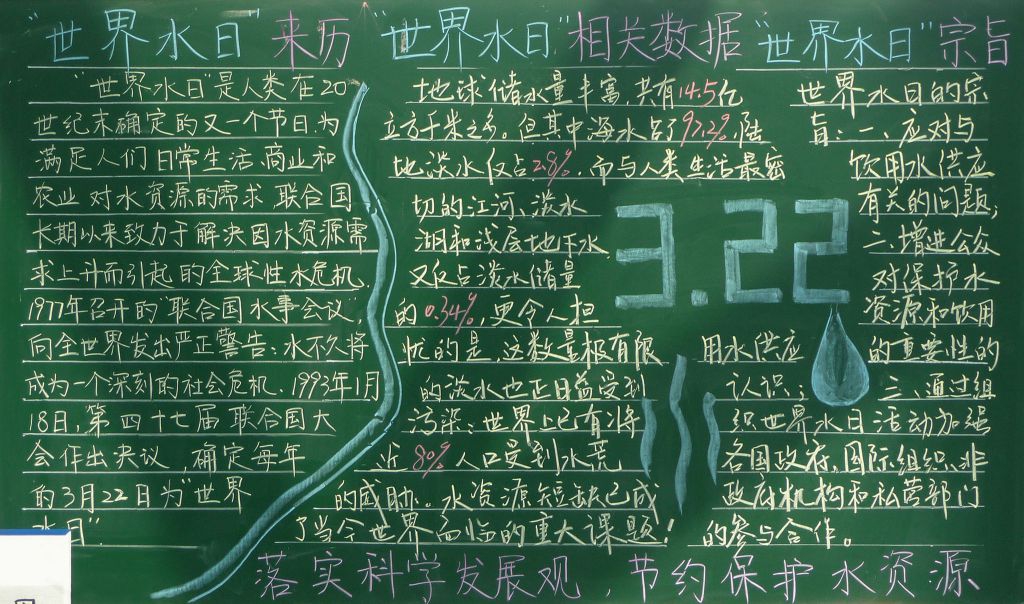 “世界水日”来历
“世界水日”是人类在20
世纪末确定的又一个节日.为
满足人们日常生活,商业和
农业对水资源的需求联合国
长期以来致力于解决因水资源需
求上升而引起的全球性水危机.
1977年召开的“联合国水事会议”,
向全世界发出严正警告:水不久将
成为一个深刻的社会危机.1993年1月
18日,第四十七届联合国大
会作出决议,确定每年
的3月22日为“世界
水日”
“世界水日”相关数据
地球储水量丰富,共有14.5亿
立方千米之多。但其中海水占了97.2%,陆
地淡水仅占2.8%,而与人类生活最密
切的江河、淡水
湖和浅层地下水,
又仅占淡水储量
的0.34%,更令人担
忧的是,这数量极有限
的淡水也正日益受到
污染;世界上已有将
近80%人口受到水荒
的威胁。水资源短缺已成
了当今世界面临的重大课题!
3.22
“世界水日”宗旨
世界水日的宗
旨:一、应对与
饮用水供应
有关的问题;
二、增进公众
对保护水
资源和饮用
用水供应的重要性的
认识;三、通过组
织世界水日活动加强
各国政府,国际组织,非
政府机构和私营部门
的参与合作。
落实科学发展观,节约保护水资源